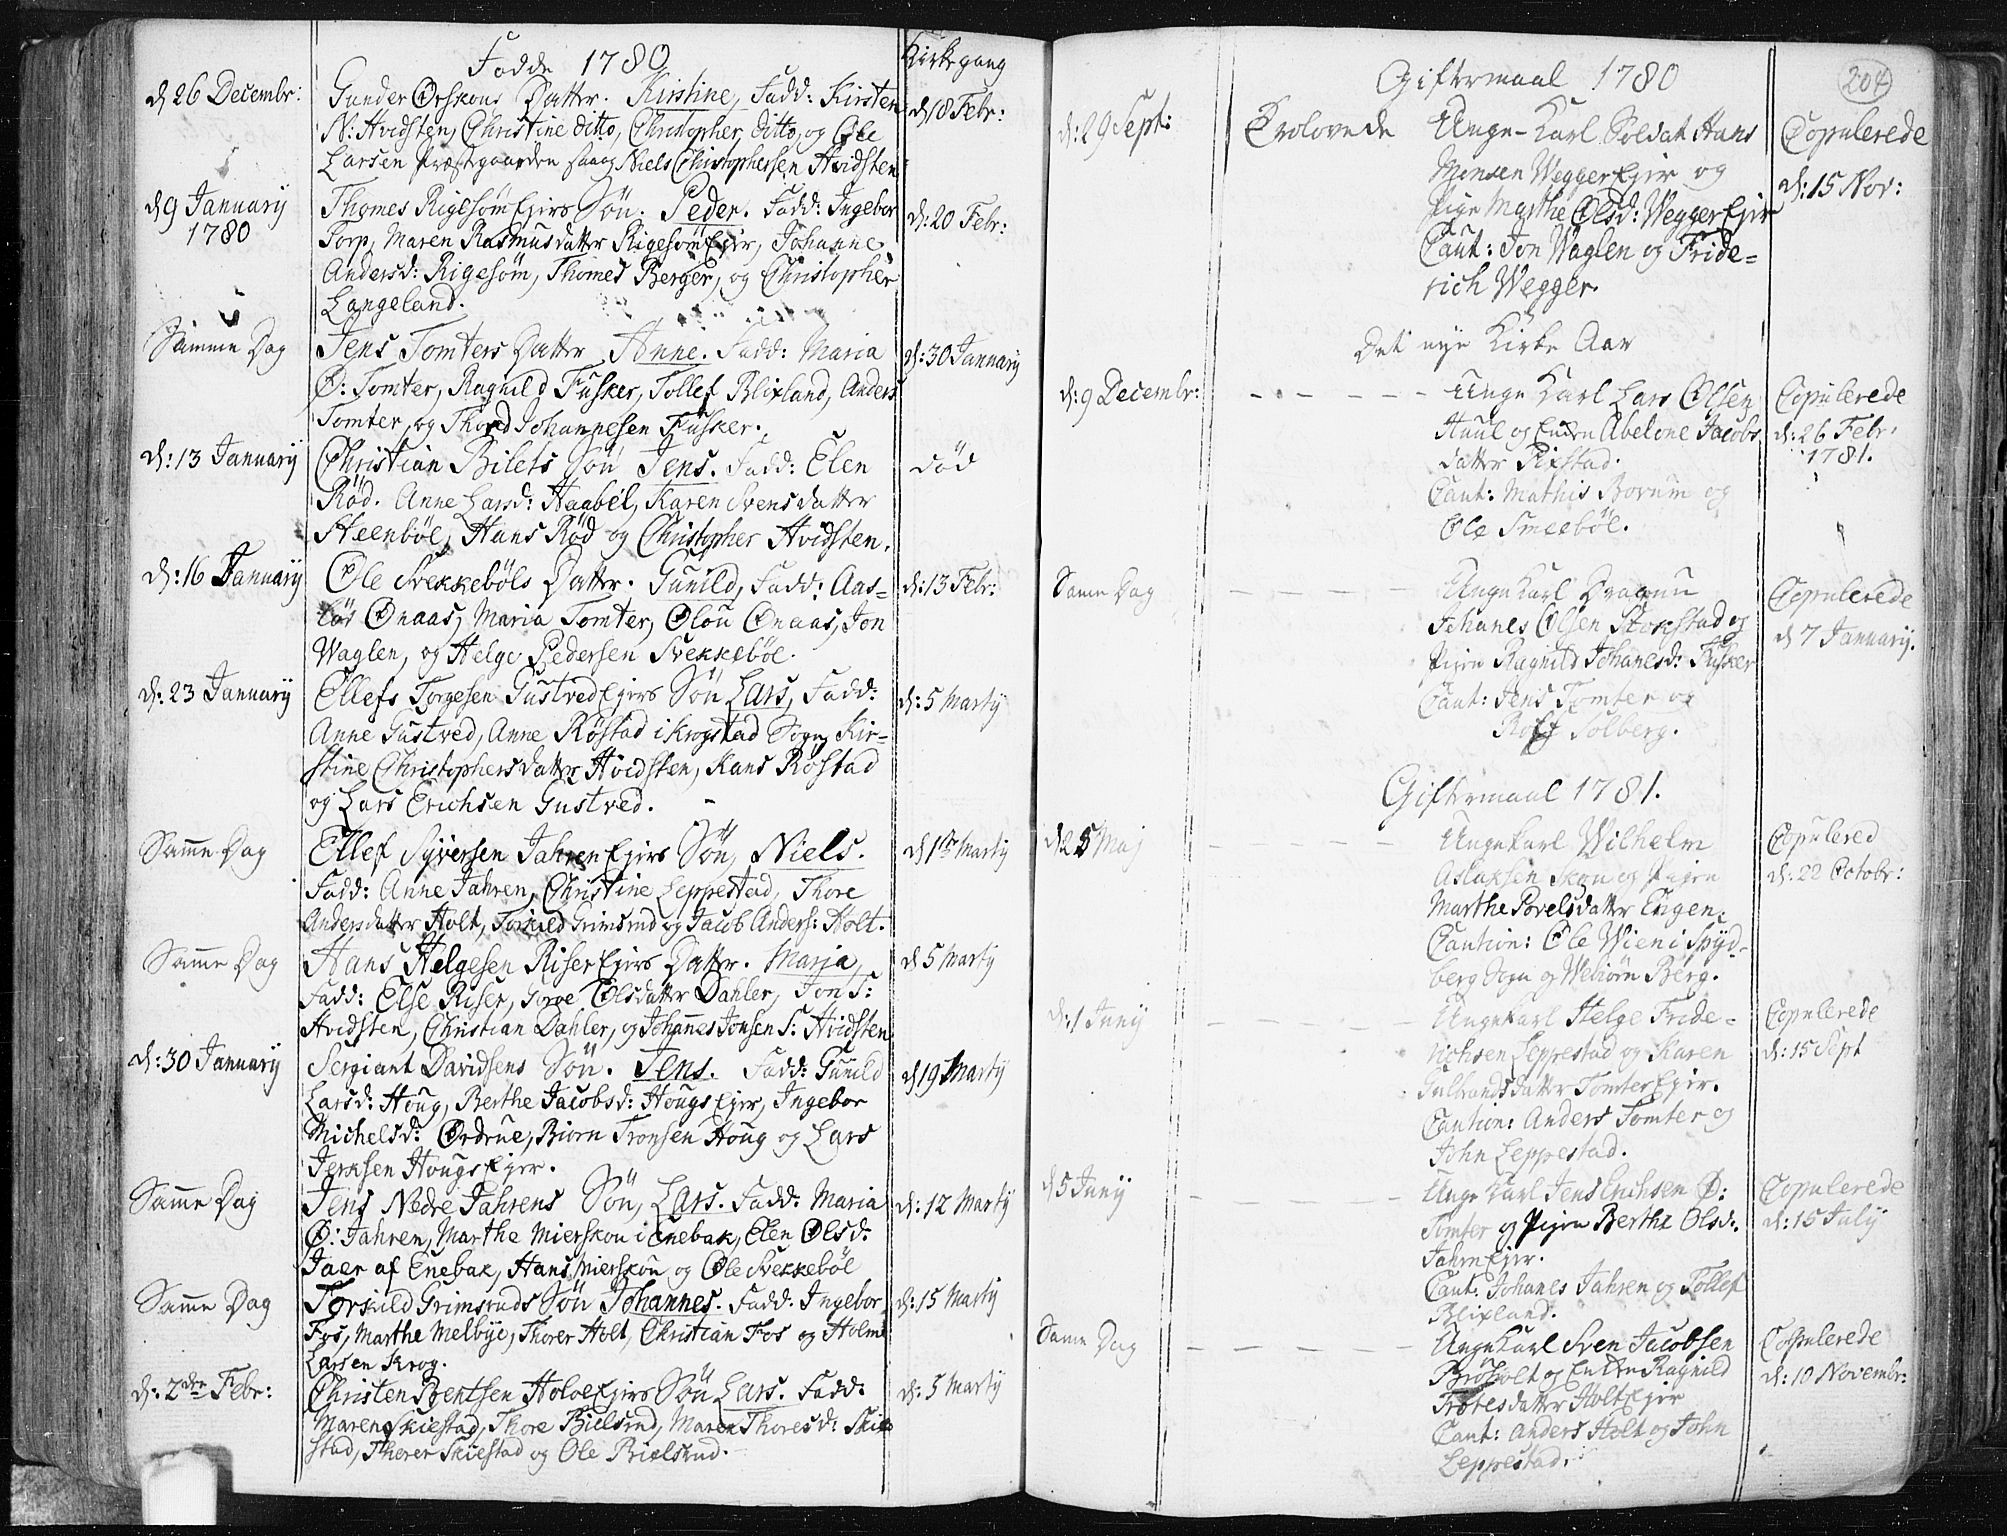 Fødde 1780
Kirkegang
d. 26 Decembr:
Gunder Ørskous Datter. Kirstine, Fadd: Kirsten
N: Hvidsten, Christine ditto, Christopher ditto, og Ole
Larsen Præstgaarden samt Niels Christophersen Hvidsten
d. 18 Febr:
d. 9 January
1780
Thomes Rigesøm Ejers Søn. Peder. Fadd: Ingebor
Torp, Maren Rasmusdatter RigesømEjer, Johanne
Andersd: Rigesøm, Thomes Berger, og Christopher
Langeland.
d: 20 Febr:
Samme Dag
Jens Tomters Datter Anne. Fadd: Maria
Ø: Tomter, Ragnild Fusker, Tollef Blixland, Anders
Tomter, og Thord Johannesen Fusker.
d: 30 January
d: 13 January
Christian Bilets Søn Jens. Fadd: Elen
Rød. Anne Larsd: Haabel, Karen Svensdatter
Steenbøl, Hans Rød og Christopher Hvidsten.
død
d: 16 January
Ole Svekkebøls Datter. Gunild, Fadd: Aas=
Onaas, Maria Tomter, Olou Onaas, Jon
Waglen, og Helge Pedersen Svekkebøl.
d: 13 Febr:
d: 23 January
Ellefs Torgesen GustvedEjers Søn Lars, Fadd:
Anne Gustved, Anne Røstad i Krogstad Sogn, Kir=
stine Christophersdatter Hvidsten, Hans Røstad
og Lars Erichsen Gustved.
d: 5 Marty
Same Dag
Ellef Syversen JahrenEjers Søn, Niels.
Fadd: Anne Jahren, Christine Leppestad, Thore
Andersdatter Holt, Torkild Grimsrud og Jacob Anders: Holt.
Marty
Same Dag
Hans Helgesen RiserEjers Datter. Maria,
Fadd: Else Riser, Olsdatter Dahler, Jon S:
Hvidsten, Christian Dahler, og Johannes Jonsen S: Hvidsten
d. 5 Marty
d: 30 January
Sergiant Davidsens Søn. Jens. Fadd: Gunild
Larsd: Houg, Berthe Jacobsd: HougsEjer, Ingebor
Michelsd: Ørdrue, Biørn Tronsen Houg og Lars
HougsEjer.
d. 19 Marty
Same Dag
Jens Nedre Jahrens Søn, Lars. Fadd: Maria
Ø: Jahren, Marthe Mierskou i Enebak, Elen Olsd:
Jaer af Enebak, Hans Mierskou og Ole Svekkebøl
d: 12 Marty
Same Dag
Torkild Grimsruds Søn Johannes. Fadd: Ingebor
Fos, Marthe Melbye, Thorer Holt, Christian Fos og Holm
Larsen Krog.
d: 15 Marty
d: 2den Febr:
Christen Bentsen HoloeEjers Søn Lars. Fadd:
Maren Skiestad, Thore Bielsrud, Maren Thoresd: Skie
stad, Thorer Skiestad og Ole Bielsrud.
d: 5 Marty
204
Giftermaal 1780
d: 29 Sept:
Trolovede
Unge-Karl Soldat Hans
Monsen WeggerEjer og
Pige Marthe Olsd: WeggerEjer
Caut: Jon Waglen og Fride=
rich Wegger.
Copulerede
d: 15 Nov:
Det nye Kirke Aar
d: 9 Decembr:
Unge Karl Lars Olsen
Huul og Enken Abelone Jacobs
datter Pixstad.
Caut: Mathis Borum og
Ole Smeebøl.
Copulerede
d: 26 Febr.
1781.
Same Dag
Unge Karl Dragun
Johanes Olsen Stokstad og
Pigen Ragnild Johanesd: Fusker
Caut: Jens Tomter og
Rolf Solberg.
Copulerede
d 7 January.
Giftermaal 1781.
d 25 Maj
Ungekarl Wilhelm
Aslaksen Skou og Pigen
Marthe Povelsdatter Engen.
Caution: Ole Wien i Spyd=
berg Sogn og Webiørn Berg.
Copulered
d: 22 Octobr:
d: 1 Juny
Ungekarl Helge Fride=
richsen Leppestad og Karen
Gulbrandsdatter TomterEjer.
Caution: Anders Tomter og
John Leppestad.
Copulerede
d: 15 Sept
d 5 Juny
Unge Karl Jens Erichsen Ø:
Tomter og Pigen Berthe Olsd:
JahrenEjer.
Caut. Johanes Jahren og Tollef
Blixland.
Copulerede
d: 15 July
Same Dag
Ungekarl Sven Jacobsen
og Enken Ragnild
datter HoltEjer
Caut: Anders Holt og John
Leppestad.
Copulerede
d: 10 Novembr: